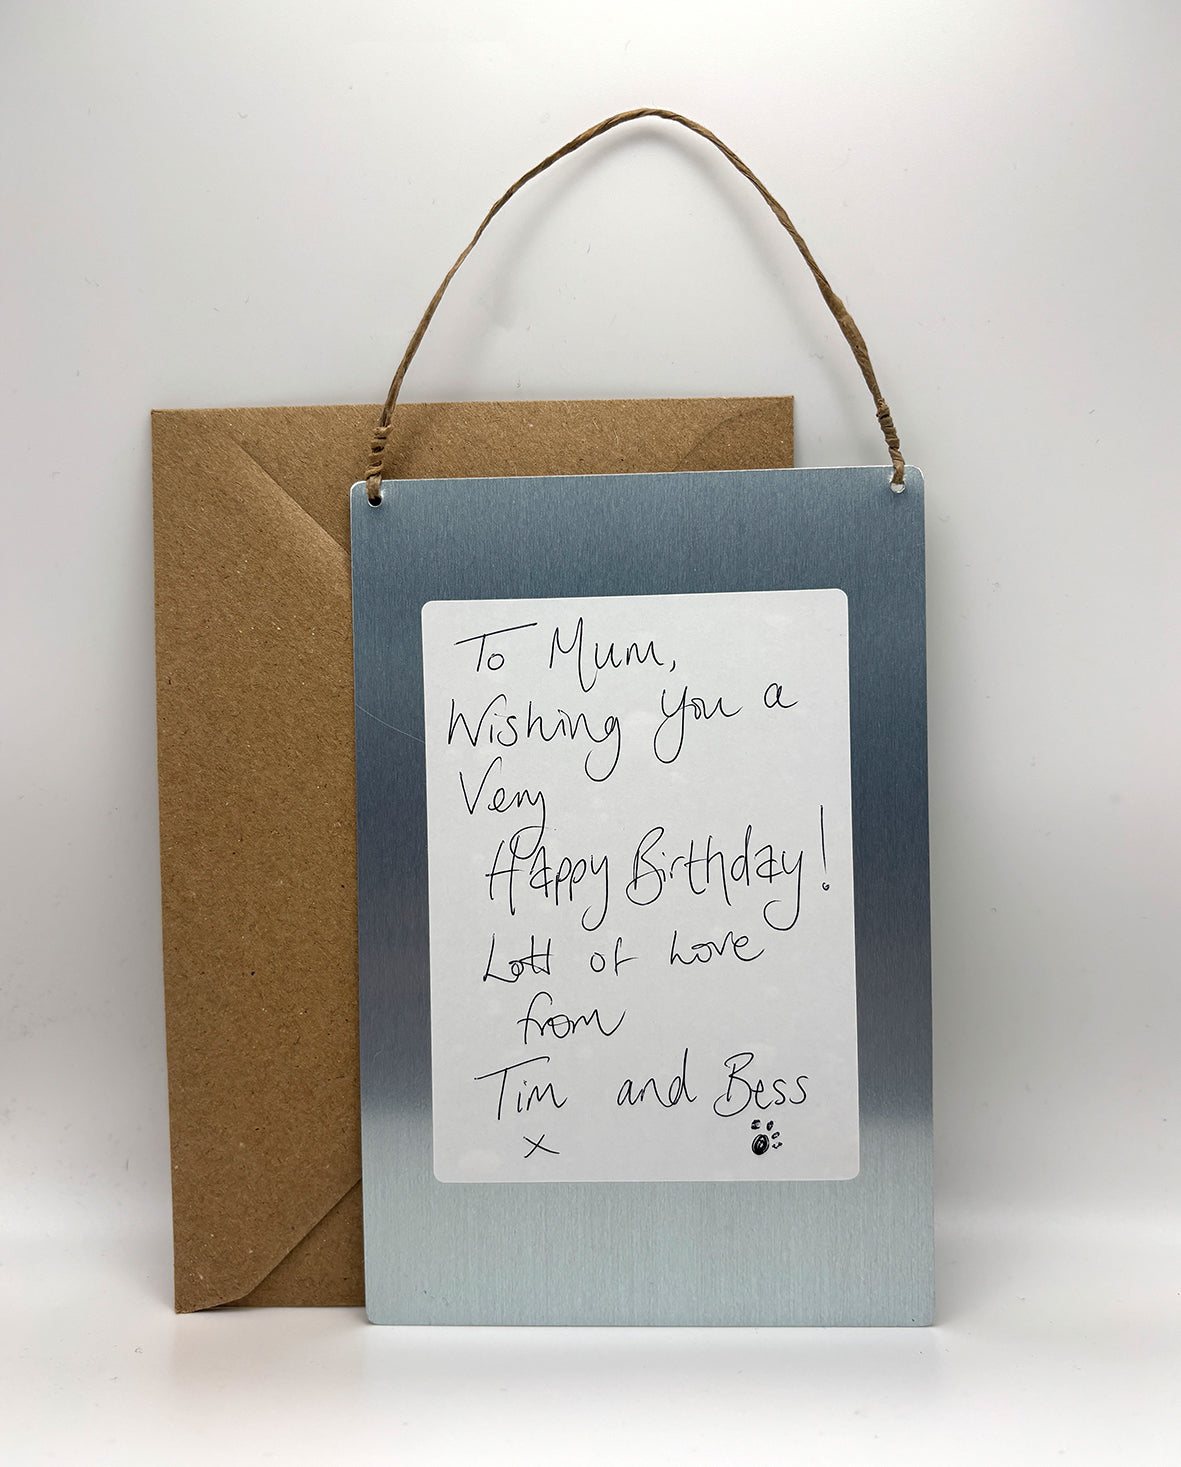 To Mum,
Wishing you a
Very
Happy Birthday!
Lots of Love
from
Tim and Bess
x